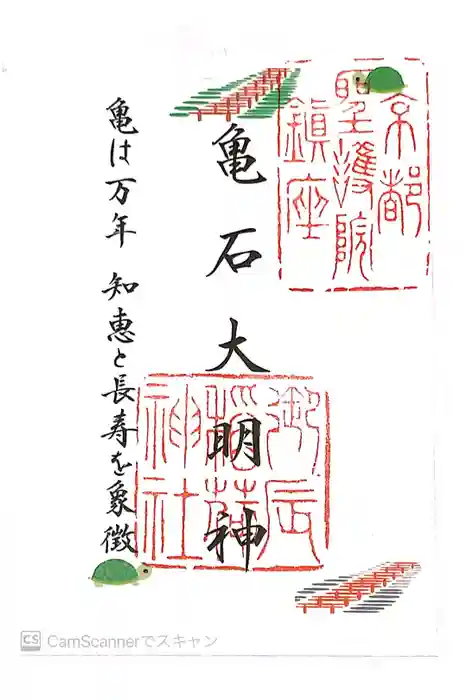 京都
聖護院
鎮座
亀石大明神
御辰
稲荷
神社
亀は万年 知恵と長寿を象徴
CS CamScannerでスキャン